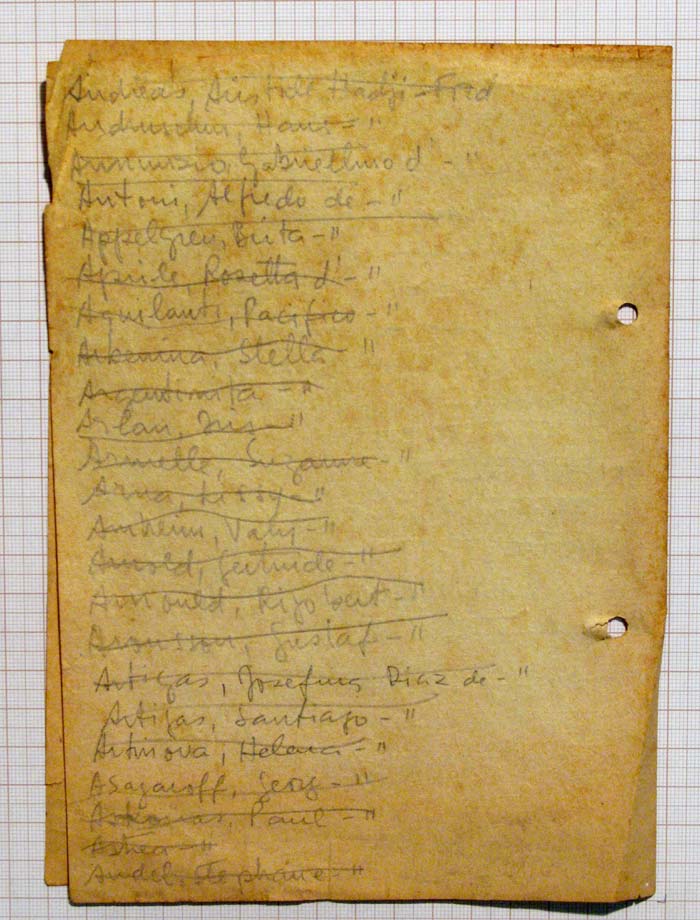 Andreas, Aristide Hadji - Fred
Hans - "
Annunzio, Gabriellino d' - "
Antoni, Alfredo de - "
Appelgren, Brita - "
Aprile, Rosetta d' - "
Aquilanti, Pacifico - "
Arbenina, Stella "
Argentinita - "
Arlan, "
Armelle, Suzanne - "
Arna, Lissy - "
Arnheim, Valy - "
Arnold, Gertrude - "
Arnould, Rigobert - "
Aronsson, Gustaf - "
Artigas, Josefina Diaz de - "
Artigas, Santiago - "
Artinova, Helena - "
Asagaroff, Georg - "
Askonas, Paul - "
"
Audel, Stephane - "